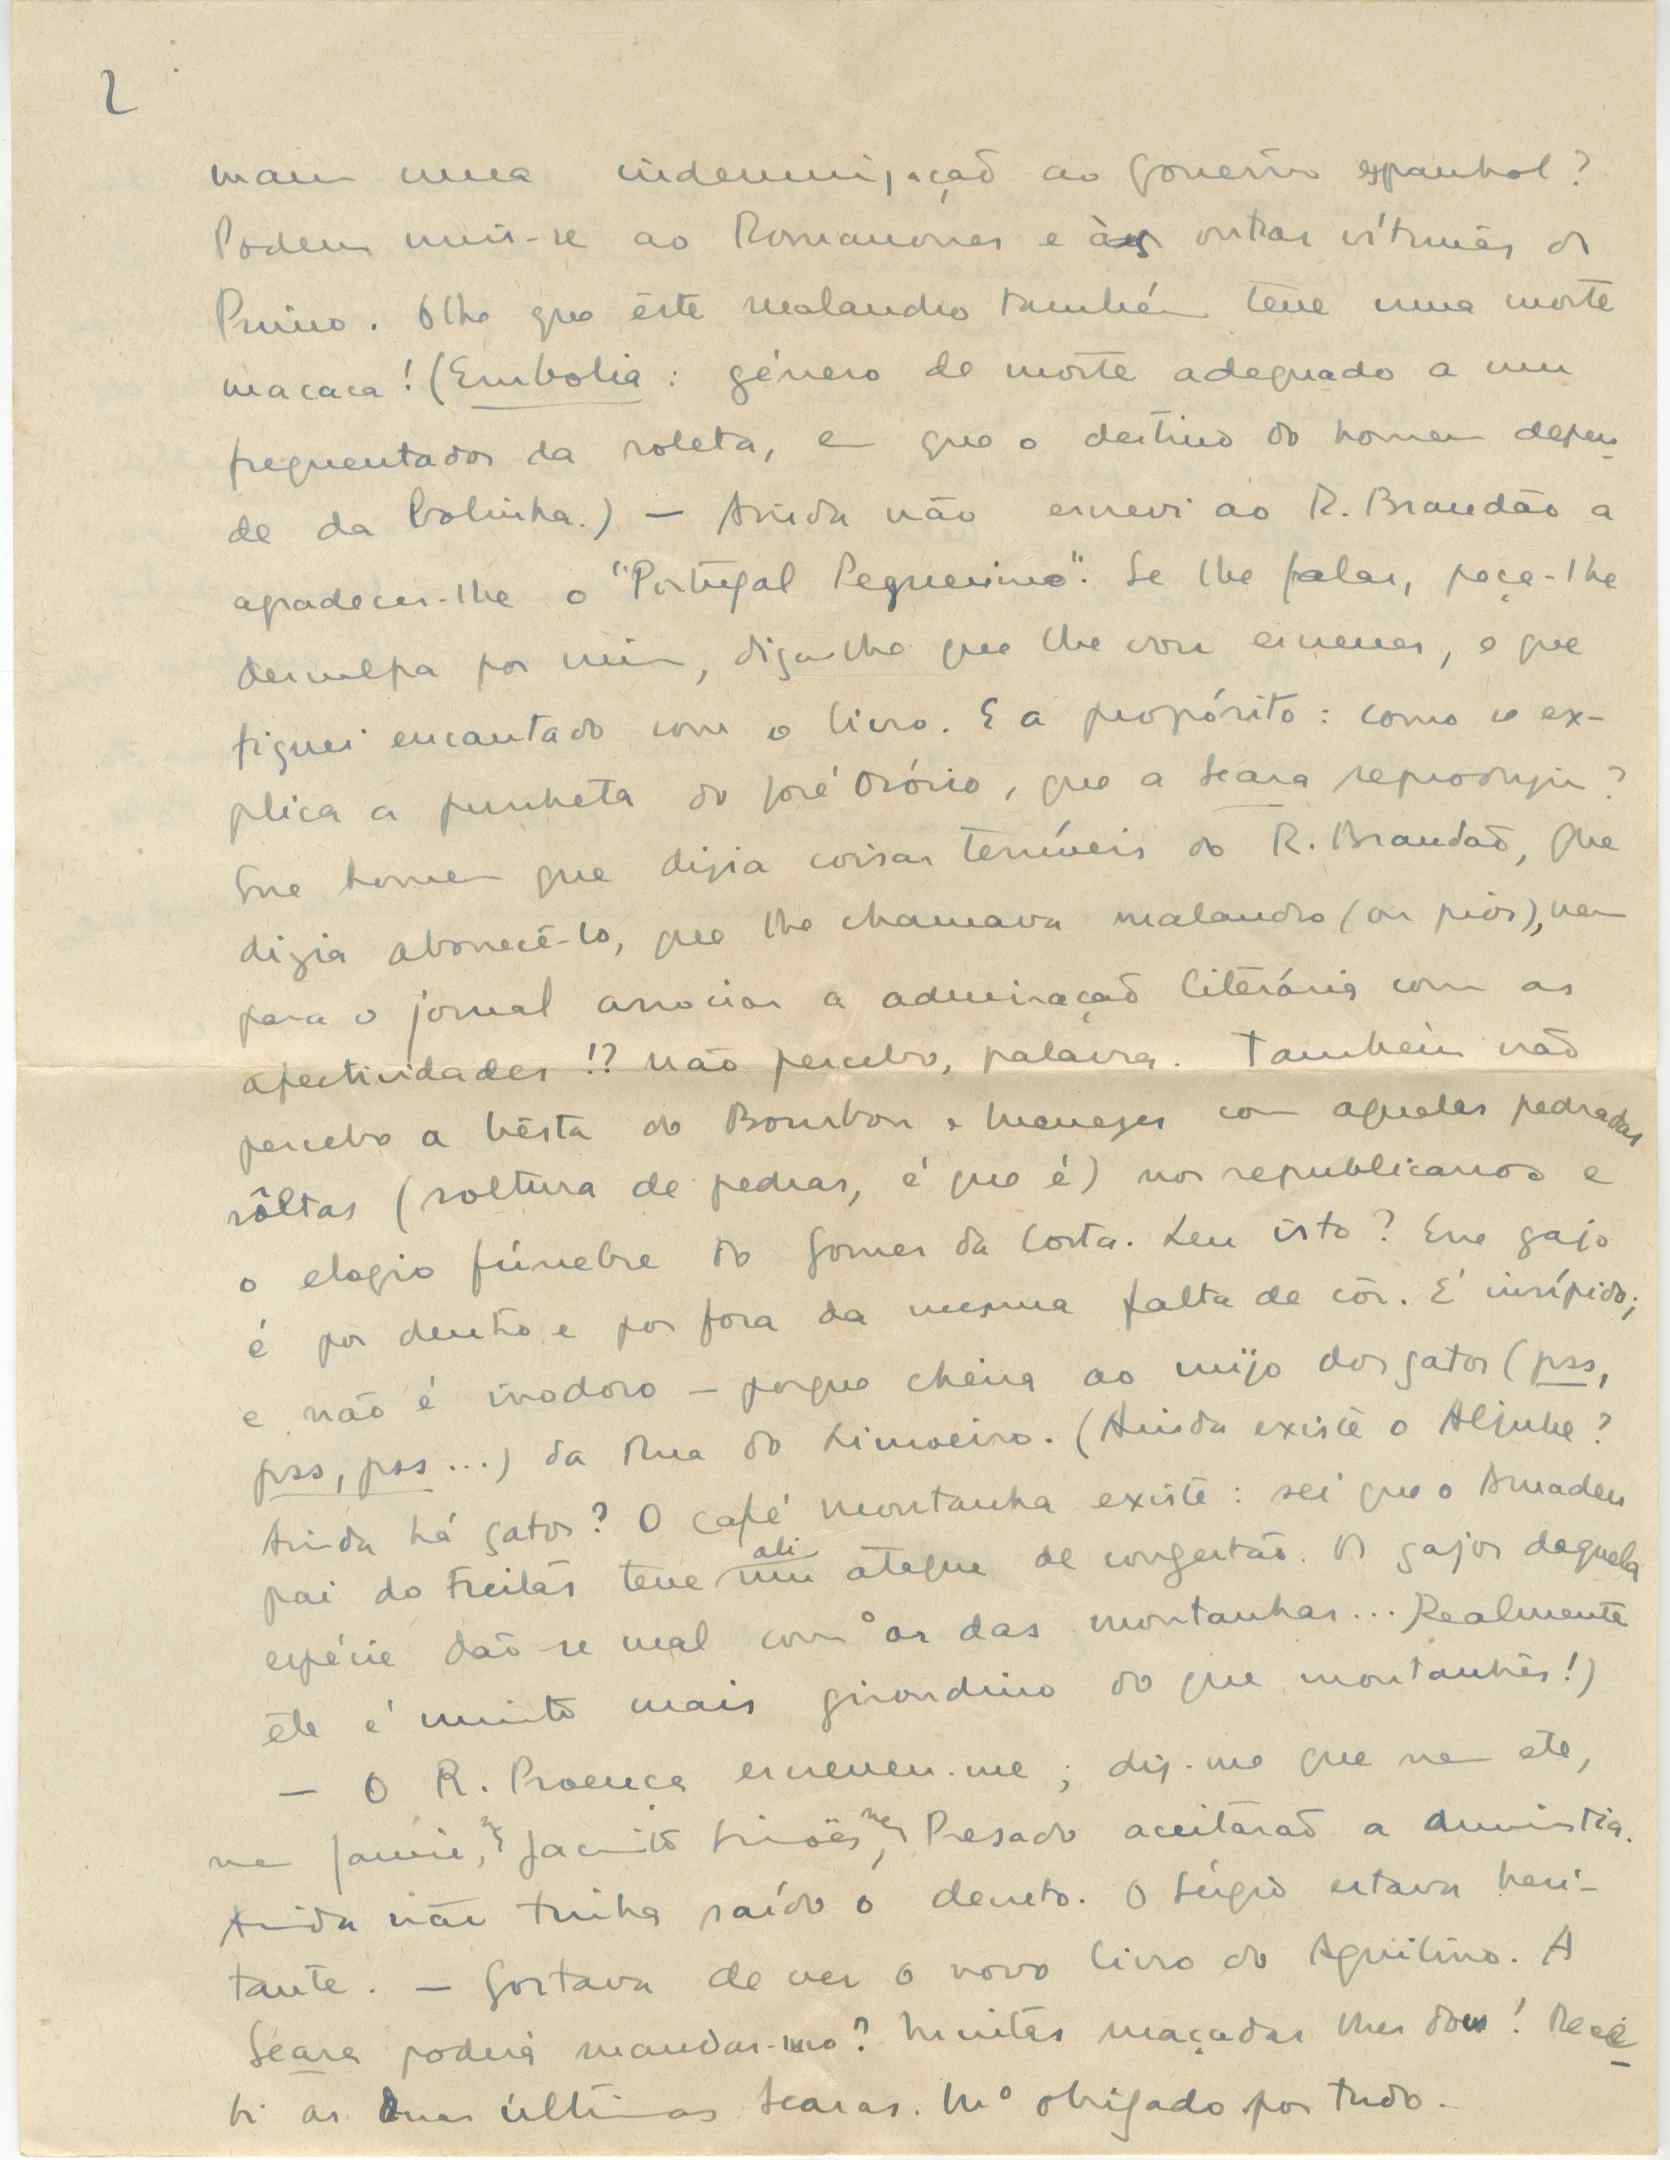 2
mam uma indemnização ao Govêrno espanhol?
Podem unir-se ao Romanones e às outras vítimas do
Primo. Olhe que êste malandro também teve uma morte
macaca! (Embolia: género de morte adequado a um
frequentador da roleta, em que o destino do homem depen-
de da bolinha.) — Ainda não escrevi ao R. Brandão a
agradecer-lhe o "Portugal Pequenino". Se lhe falar, peça-lhe
desculpa por mim, diga-lhe que lhe vou escrever, e que
fiquei encantado com o livro. E a propósito: como se ex-
plica a punheta do José Osório, que a Seara reproduziu?
Êsse homem que dizia coisas terríveis do R. Brandão, que
dizia aborrecê-lo, que lhe chamava malandro (ou pior), vem
para o jornal associar a admiração literária com as
afectividades!? Não percebo, palavra. Também não
percebo a bêsta do Bourbon e Menezes com aquelas pedradas
sôltas (soltura de pedras, é que é) nos republicanos e
o elogio fúnebre do Gomes da Costa. Leu isto? Êsse gajo
é por dentro e por fora da mesma falta de côr. É insípido;
e não é inodoro — porque cheira ao mijo dos gatos (pss,
pss, pss...) da Rua do Limoeiro. (Ainda existe o Aljube?
Ainda há gatos? O café Montanha existe: sei que o Amadeu
pai do Freitas teve ali um ataque de congestão. Os gajos daquela
espécie dão-se mal com o ar das montanhas... Realmente
êle é muito mais girondino do que montanhês!)
— O R. Proença escreveu-me; diz-me que nem ele,
nem Jaime, nem Jacinto Simões, nem Pesado aceitarão a amnistia.
Ainda não tinha saído o decreto. O Sérgio estava hesi-
tante. — Gostava de ver o novo livro do Aquilino. A
Seara poderá mandar-mo? Muitas maçadas lhes dou! Rece-
bi as duas últimas Searas. Mº obrigado por tudo.